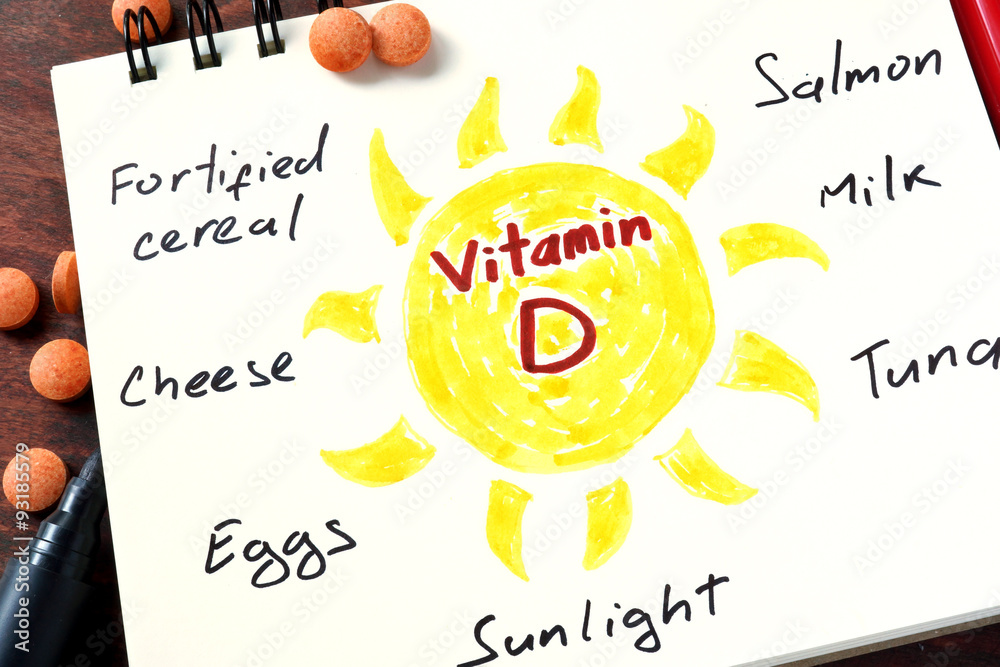 Salmon
Fortified
cereal
Milk
Vitamin
D
Tuna
Cheese
Eggs
Sunlight
Adobe Stock | #93185579